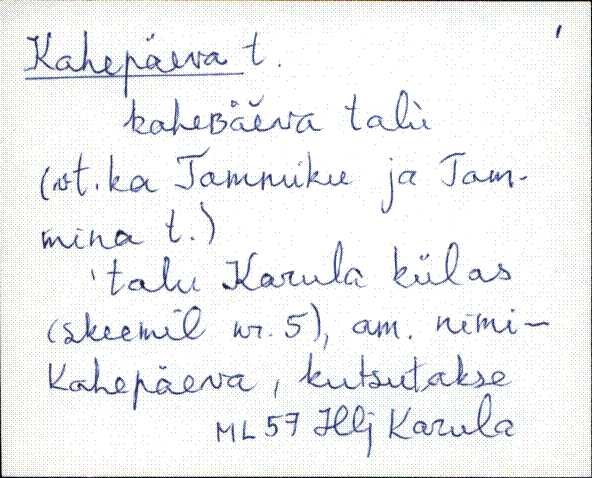 Kahepäeva t.
kaheBäěva talù
(vt. ka Tammiku ja Tam-
mina t.)
'talu Karula külas
(skeemil nr. 5), am. nimi-
Kahepäeva, kutsutakse
ML 57 Hlj Karula